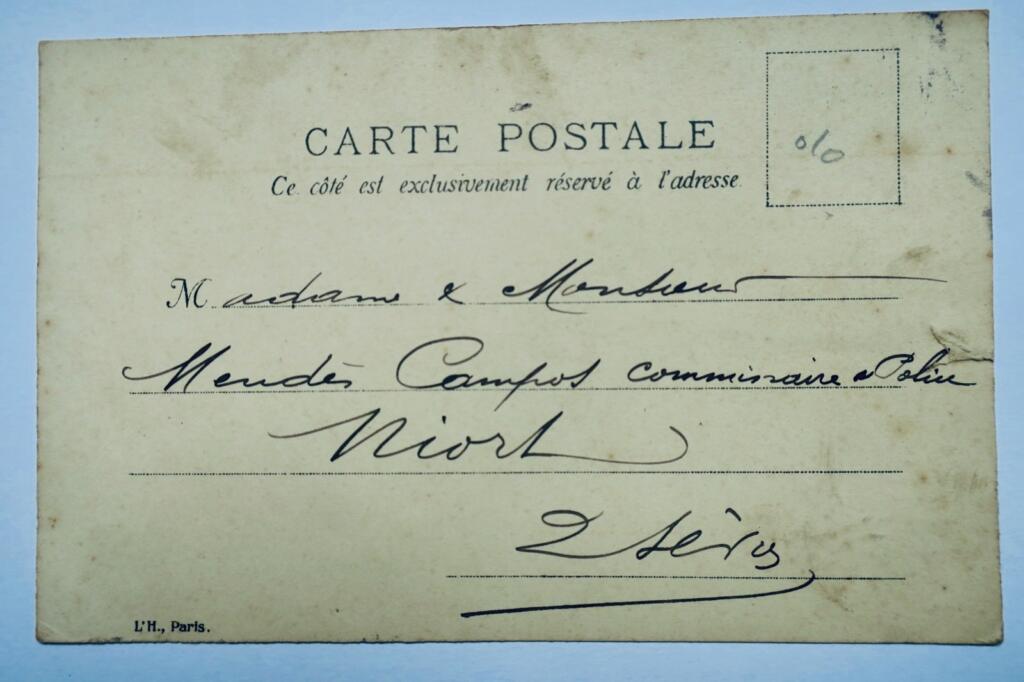 CARTE POSTALE
Ce côté est exclusivement réservé à l'adresse.
Madame & Monsieur
Mendès Campos commissaire de Police
Niort
2 Sèvres
L'H., Paris.